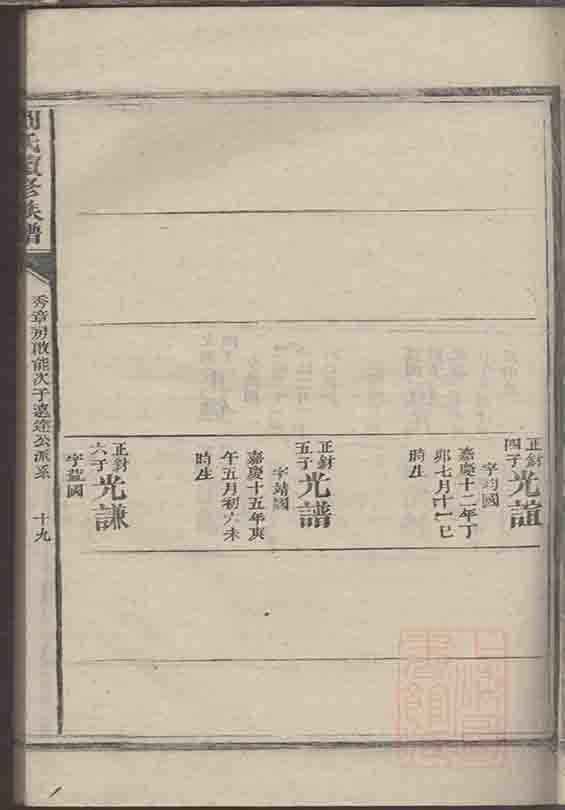 正封四子光誼
字鈞國
嘉慶十二年丁
卯七月十一巳
時生
正封五子光譜
字靖國
嘉慶十五年庚
午五月初六未
時生
正封六子光謙
字益國
氏續修族譜
秀章房啟能次子遠達公派系
十九